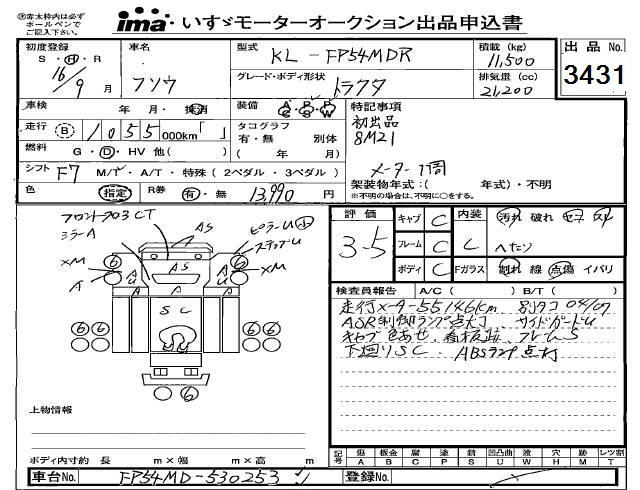 ㊟赤太枠内は必ず
ボールペンで
ご記入下さい。
ima いすゞモーターオークション出品申込書
初度登録
S・H・R
16/9 月
車名
フソウ
型式
KL-FP54MDR
積載 (kg)
11,500
出品No.
3431
グレード・ボディ形状
トラクタ
排気量 (cc)
21,200
車検
年 月・抹消
装備 A/C P/S P/W
特記事項
初出品
8M21
メーター1周
走行 B 1055 000km「 」
タコグラフ
有・無 別体
( 年 月)
燃料 G・D・HV 他( )
シフト F7 M/T・A/T・特殊(2ペダル・3ペダル)
架装物年式:( 年式)・不明
※不明の場合は、不明に○をする。
色 指定 R券 有・無 13,990 円
フロントガラスCT
ミラーA
AS
ピラーU小
ステップU
6 6
XM XM
A
AS
A U A A U A
SC
6 6 6 6
6
評価
3.5
キャブ C
フレーム C
ボディ C
内装
汚れ 破れ セコ スレ
ヘたり
Fガラス
割れ 線 点傷 イバリ
検査員報告 A/C( ) B/T( )
走行メーター55146km 別タコ04/07
ASR制御ランプ点灯 サイドガードU
キャブ色あせ、看板跡 フレームS
下廻りSC. ABSランプ点灯
上物情報
ボディ内寸約 長 m×幅 m×高 m
記号
傷 板金 腐 塗 錆 凹凸曲 波 穴 跡 レツ割
A B C P S U W H M T
車台No. FP54MD-530253
登録No.